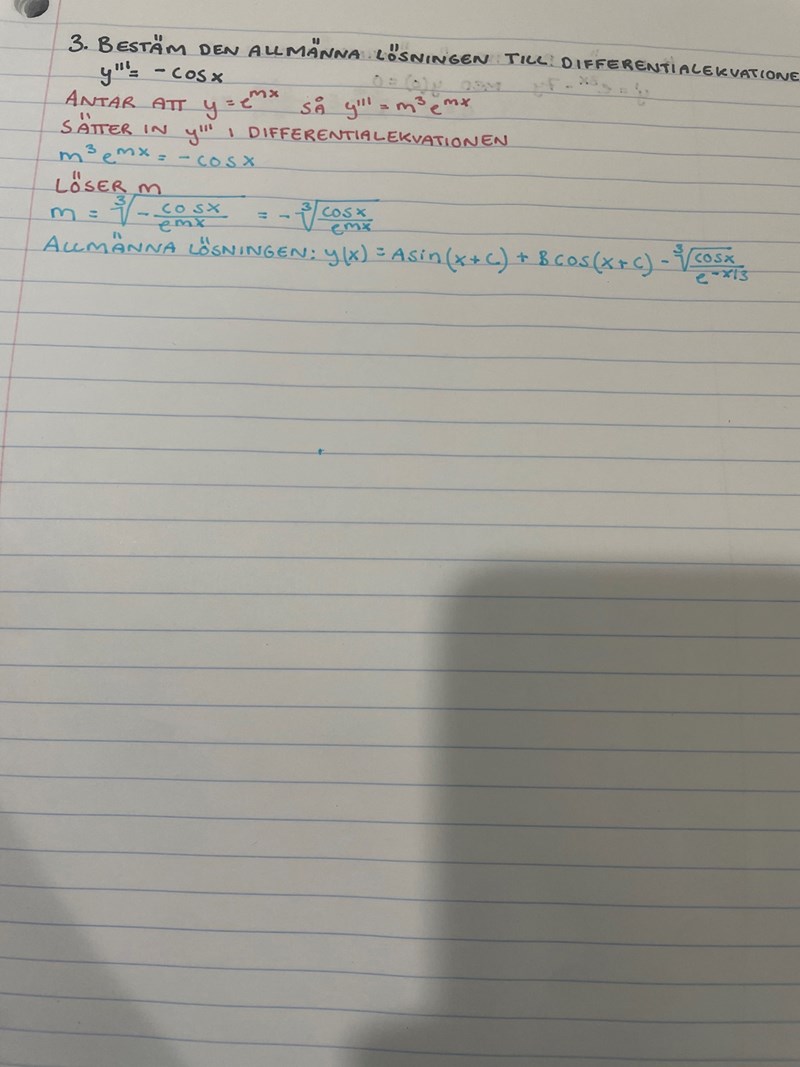 3. BESTÄM DEN ALLMÄNNA LÖSNINGEN TILL DIFFERENTIALEKVATIONE
y''' = -cosx
ANTAR ATT y = e^mx SÅ y''' = m³e^mx
SÄTTER IN y''' I DIFFERENTIALEKVATIONEN
m³e^mx = -cosx
LÖSER m
m = ∛(-cosx/emx) = -∛(cosx/emx)
ALLMÄNNA LÖSNINGEN: y(x) = Asin(x+c) + Bcos(x+c) - ∛(cosx/e^-x/3)